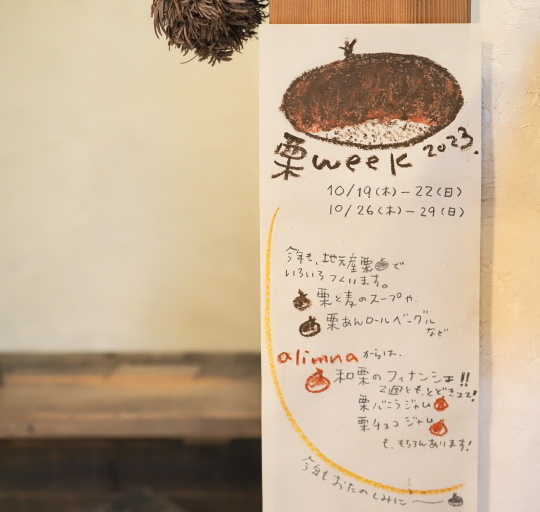 栗week 2023.
10/19(木)-22(日)
10/26(木)-29(日)
今年も、地元産栗で
いろいろつくります。
栗と麦のスープや、
栗あんロールベーグル
など
alimnaからは、
和栗のフィナンシェ!!
2週とも、とどきマス!
栗バニラジャム
栗チョコジャム
も、もちろんあります!
今年もおたのしみに〜